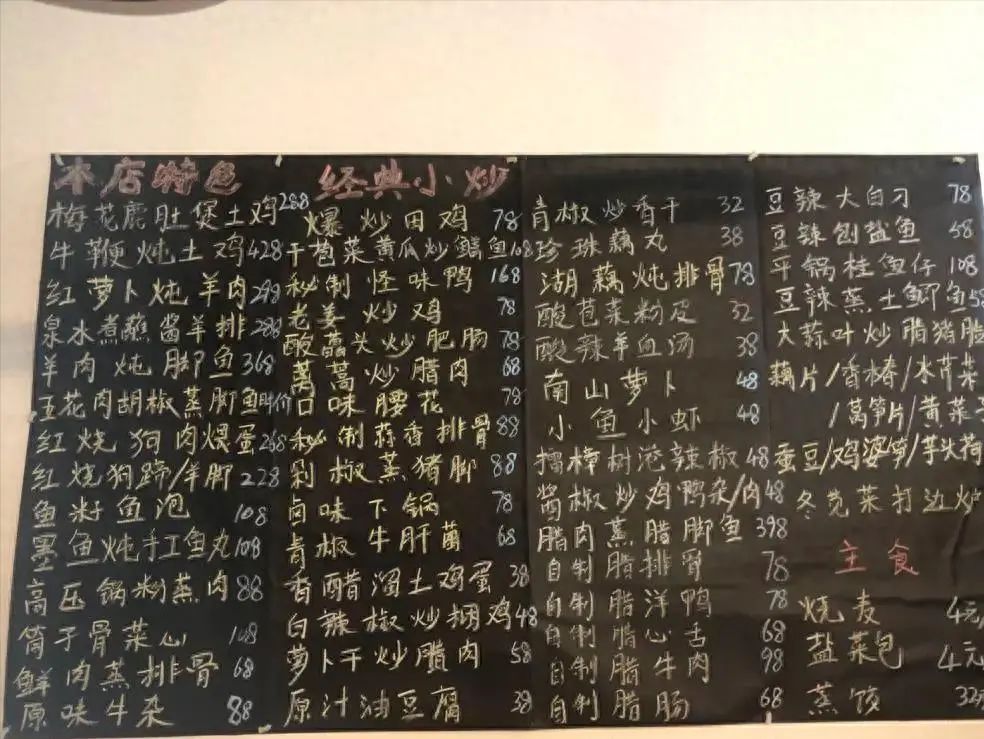 本店特色
梅花鹿肚煲土鸡288
牛鞭炖土鸡428
红萝卜炖羊肉298
泉水煮蘸酱羊排288
羊肉炖脚鱼368
五花肉胡椒蒸脚鱼时价
红烧狗肉煨蛋268
红烧狗蹄/羊脚228
鱼籽鱼泡 108
墨鱼炖手工鱼丸108
高压锅粉蒸肉88
筒子骨菜心 108
鲜肉蒸排骨 68
原味牛杂 88
经典小炒
爆炒田鸡 78
干苞菜黄瓜炒鳝鱼108
秘制怪味鸭 168
老姜炒鸡 78
酸藠头炒肥肠 78
藜蒿炒腊肉 68
口味腰花 78
秘制蒜香排骨 88
剁椒蒸猪脚 88
卤味下锅 78
青椒牛肝菌 68
香醋溜土鸡蛋 38
白辣椒炒胡鸡48
萝卜干炒腊肉 58
原汁油豆腐 38
青椒炒香干 32
珍珠藕丸 38
湖藕炖排骨78
酸苞菜粉皮 32
酸辣羊血汤 38
南山萝卜 48
小鱼小虾 48
擂樟树港辣椒48
酱椒炒鸡鸭杂/肉48
腊肉蒸腊脚鱼 398
自制腊排骨 78
自制腊洋鸭 78
自制腊心舌 68
自制腊牛肉 98
自制腊肠 68
豆辣大白刁 78
豆辣刨盐鱼 68
平锅桂鱼仔 108
豆辣蒸土鲫鱼58
大蒜叶炒腊猪脸
藕片/香椿/水芹菜
/莴笋片/黄菜
蚕豆/鸡婆笋/芋头荷
冬苋菜打边炉
主食
烧麦 4元
盐菜包 4元
蒸饺 32